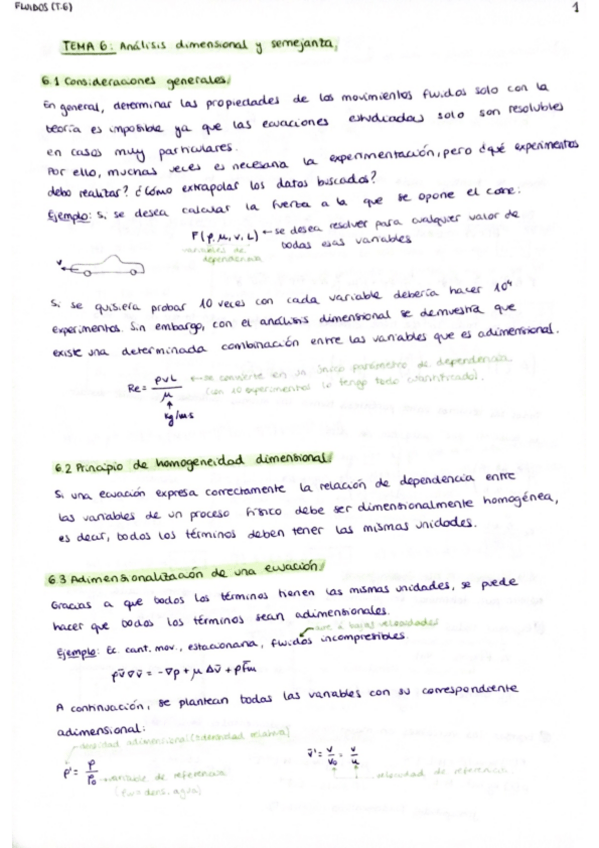 FLUIDOS (T.6)
1
TEMA 6: Análisis dimensional y semejanza.
6.1 Consideraciones generales.
En general, determinar las propiedades de los movimientos fluidos solo con la
teoría es imposible ya que las ecuaciones estudiadas solo son resolubles
en casos muy particulares.
Por ello, muchas veces es necesaria la experimentación, pero ¿qué experimentos
debo realizar? ¿Cómo extrapolar los datos buscados?
Ejemplo: Si se desea calcular la fuerza a la que se opone el coche:
F(ρ, μ, v, L) ← se desea resolver para cualquier valor de
todas esas variables
variables de
dependencia
v
Si se quisiera probar 10 veces con cada variable debería hacer 10⁴
experimentos. Sin embargo, con el análisis dimensional se demuestra que
existe una determinada combinación entre las variables que es adimensional.
Re = ρvL / μ ← se convierte en un único parámetro de dependencia
(con 10 experimentos lo tengo todo cuantificado).
kg/ms
6.2 Principio de homogeneidad dimensional.
Si una ecuación expresa correctamente la relación de dependencia entre
las variables de un proceso físico debe ser dimensionalmente homogénea,
es decir, todos los términos deben tener las mismas unidades.
6.3 Adimensionalización de una ecuación.
Gracias a que todos los términos tienen las mismas unidades, se puede
hacer que todos los términos sean adimensionales.
aire a bajas velocidades
Ejemplo: Ec. cant. mov., estacionaria, fluidos incompresibles
ρv̄∇v̄ = -∇p + μΔv̄ + ρf̄m
A continuación, se plantean todas las variables con su correspondiente
adimensional:
densidad adimensional (densidad relativa)
ρ' = ρ/ρ₀ → variable de referencia
(ρw = dens. agua)
v̄' = v/v₀ = v/u
velocidad de referencia